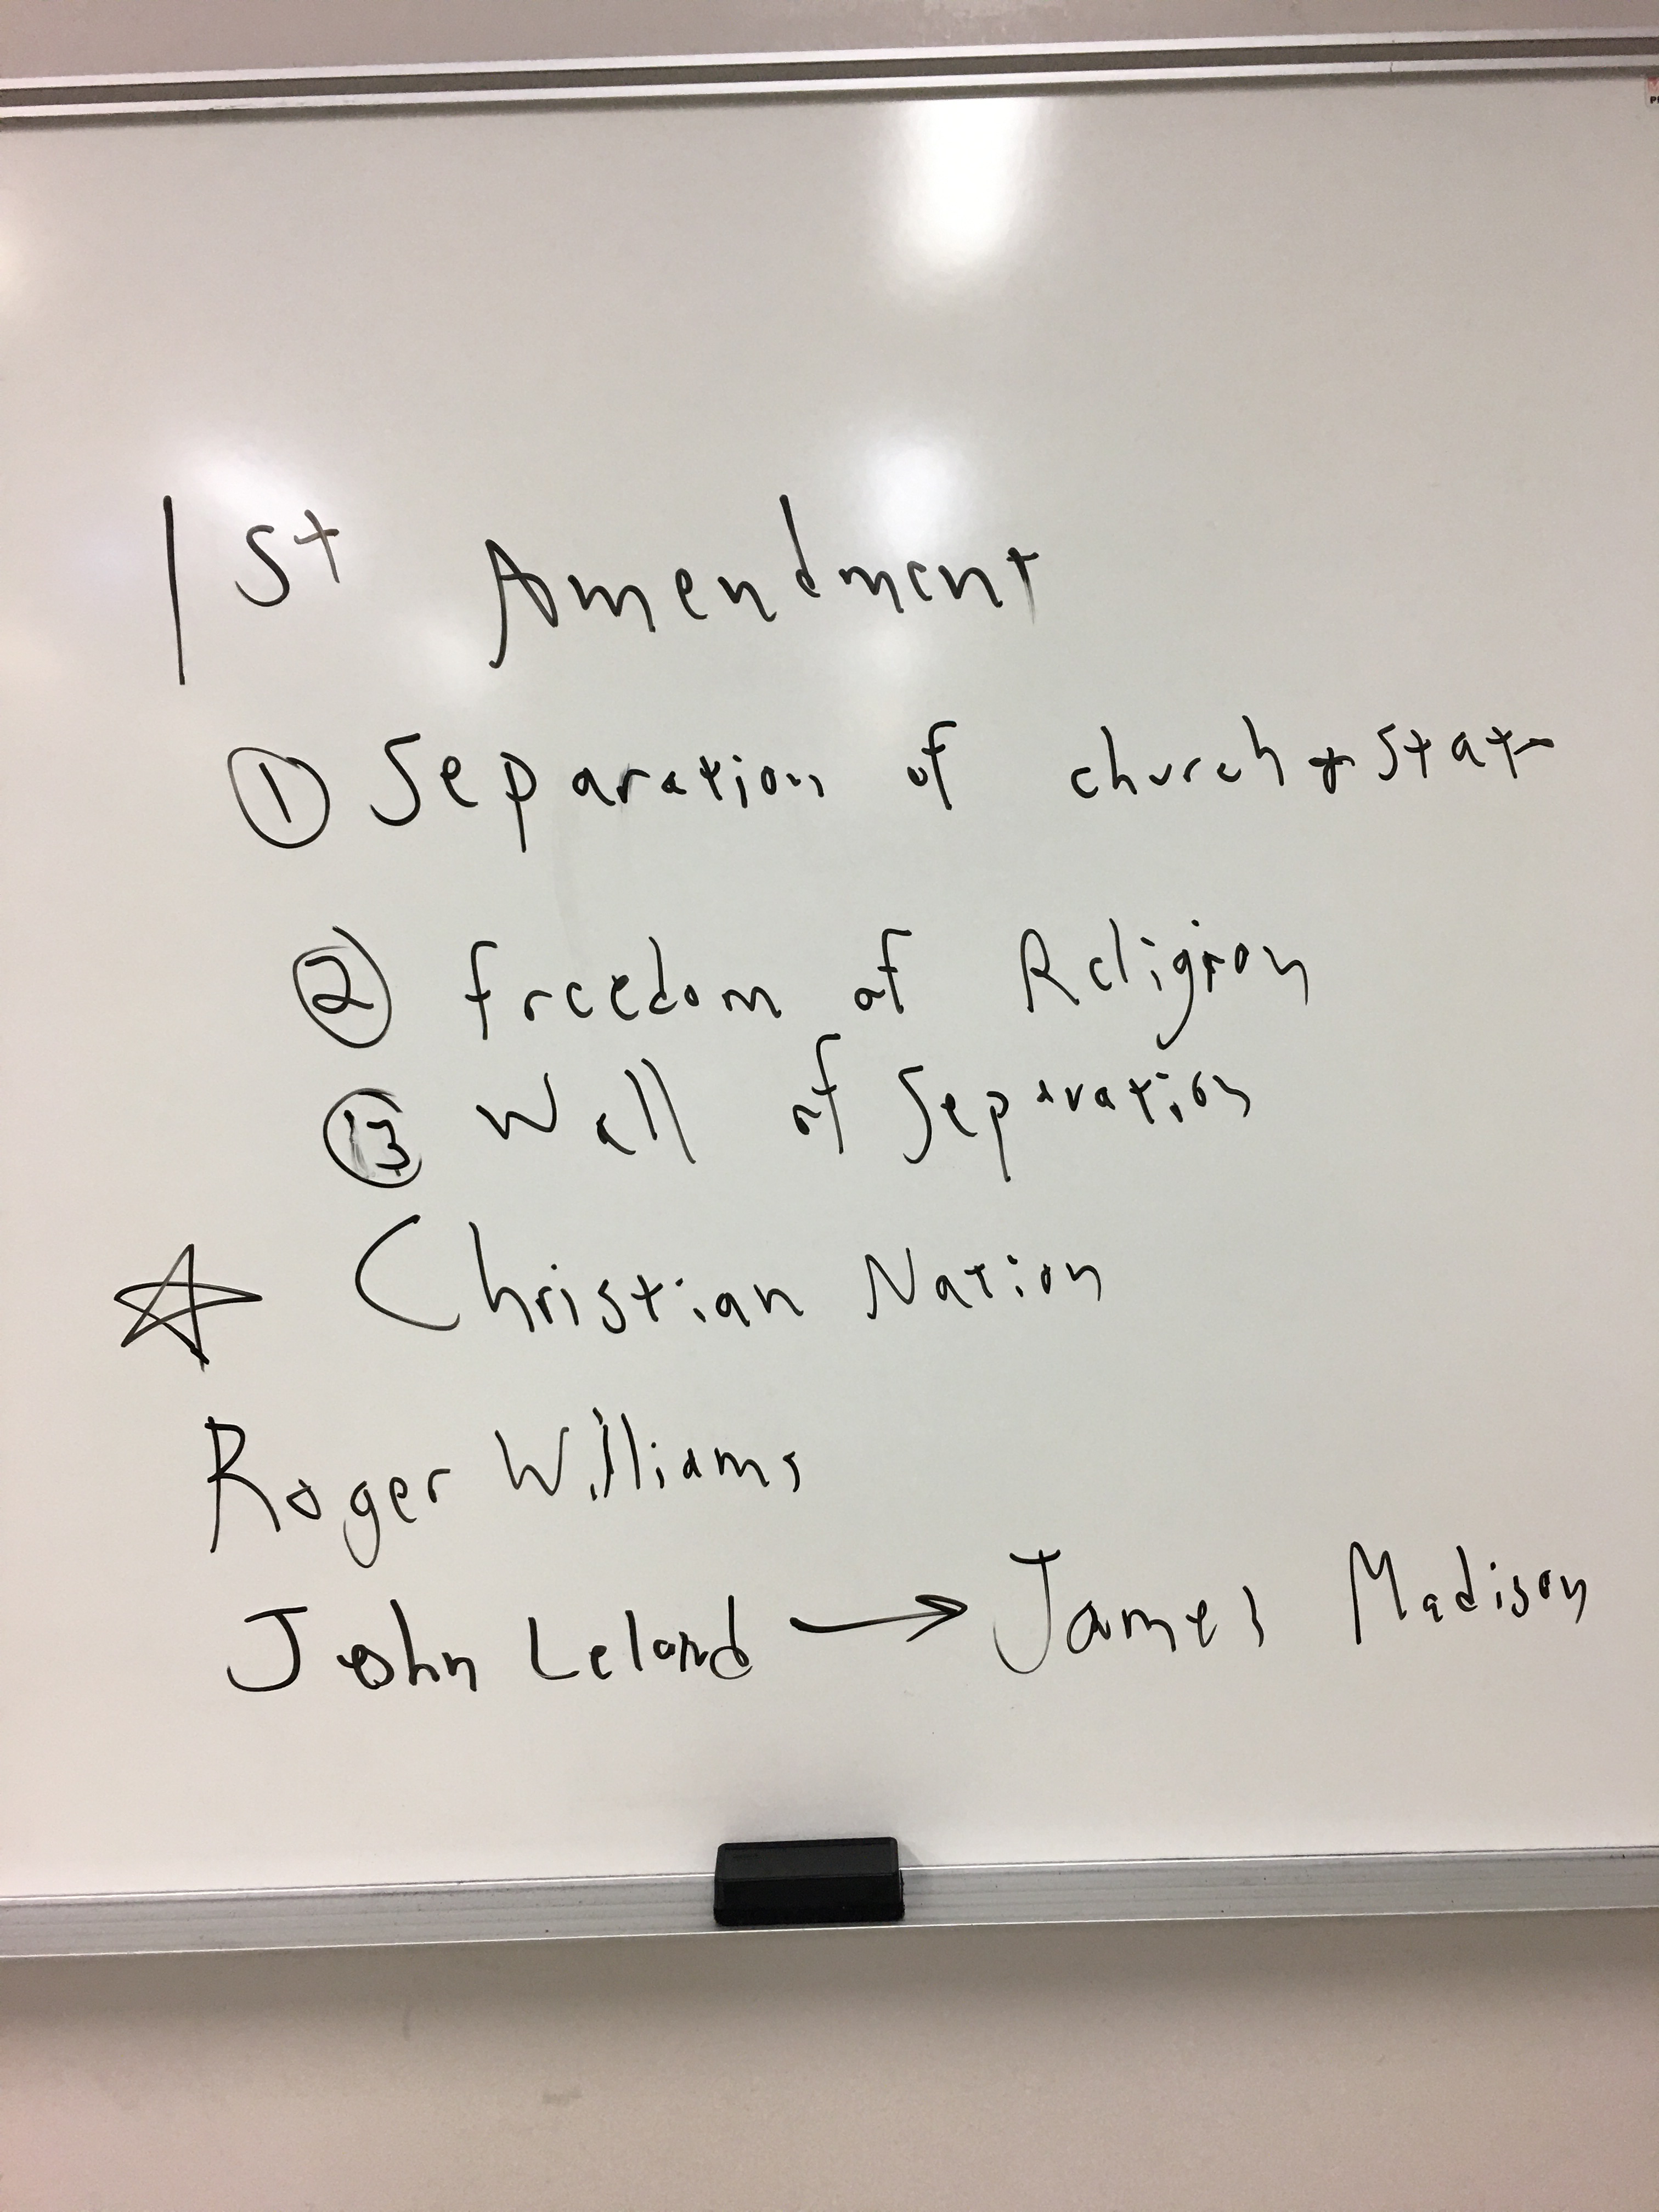 1st Amendment
① Separation of church + State
② freedom of Religion
③ Wall of Separation
☆ Christian Nation
Roger Williams
John Leland → James Madison